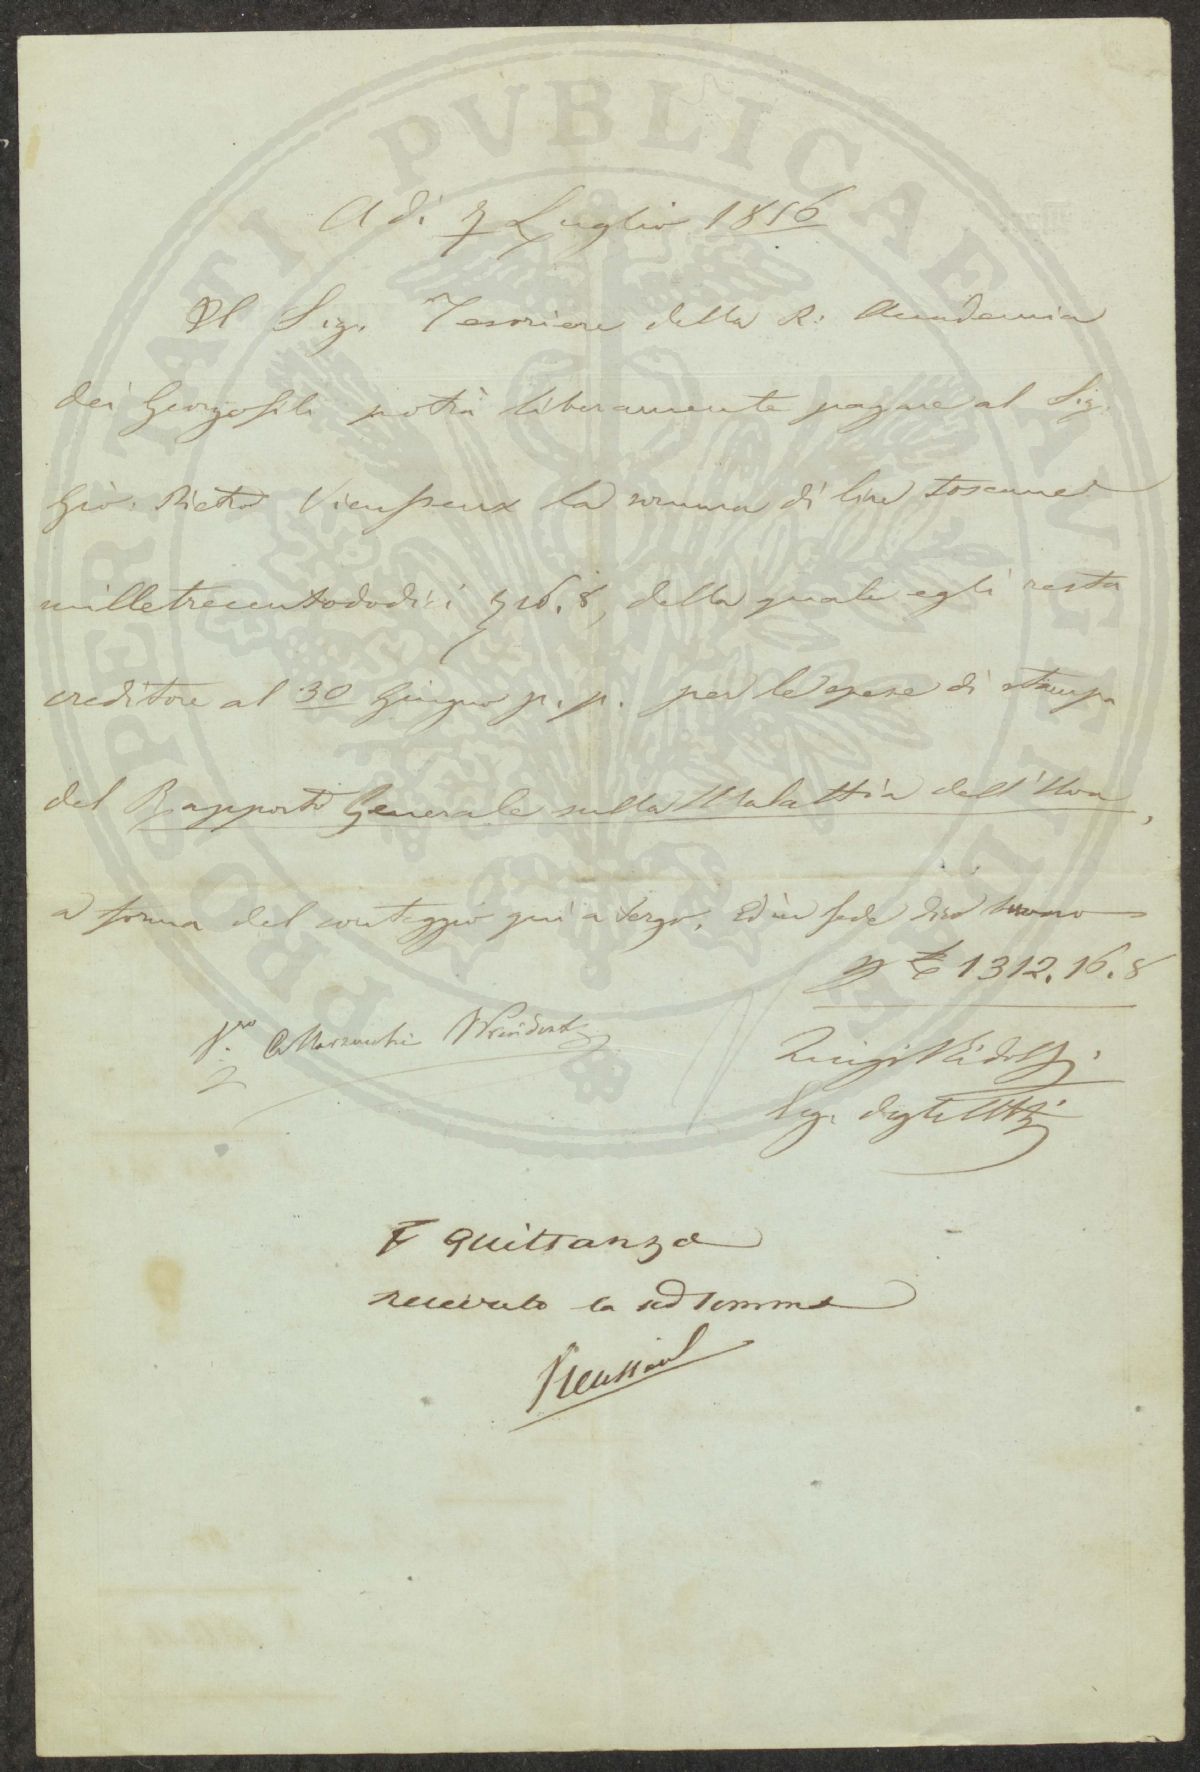 PROSPERITATI PVBLICAE AVGENDAE
A dì 7 Luglio 1856
Il Sig. Tesoriere della R. Accademia
dei Georgofili potrà liberamente pagare al Sig.
Gio. Pietro Vieusseux la somma di lire toscane
milletrecentododici 16.8, della quale egli resta
creditore al 30 Giugno p.p. per le spese di stampa
del Rapporto Generale sulla Malattia dell'Uva,
a forma del conteggio qui a tergo. Ed in fede dico buono
p £ 1312.16.8
Luigi Ridolfi
Seg. degli Atti
Quittanza
ricevuto la sud somma
Vieusseux